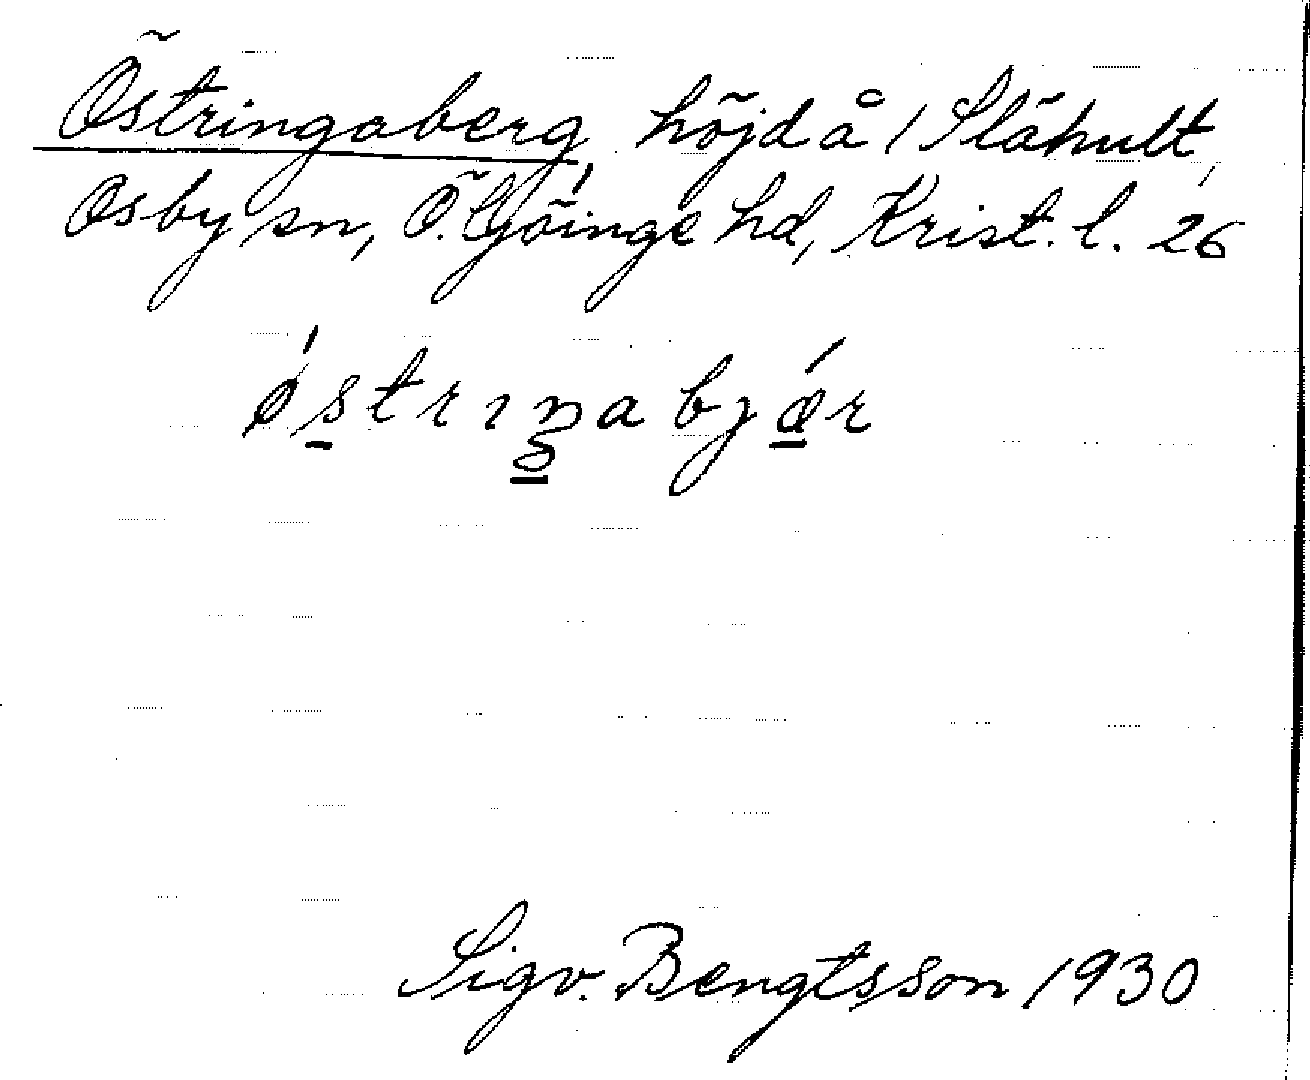 Östringaberg, höjd å 1 Slähult,
Osby sn, Ö. Göinge hd, Krist. l. 26
östriŋabjær
Sigv. Bengtsson 1930